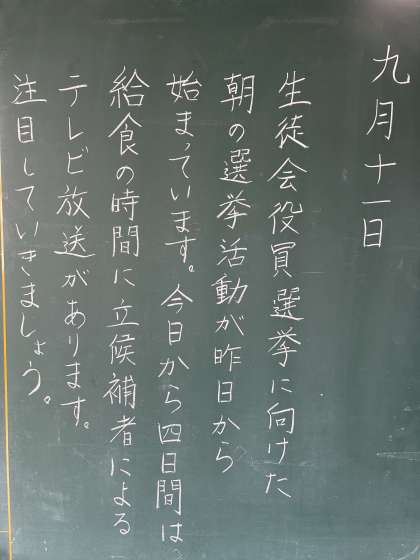 九月十一日
生徒会役員選挙に向けた
朝の選挙活動が昨日から
始まっています。今日から四日間は、
給食の時間に立候補者による
テレビ放送があります。
注目していきましょう。